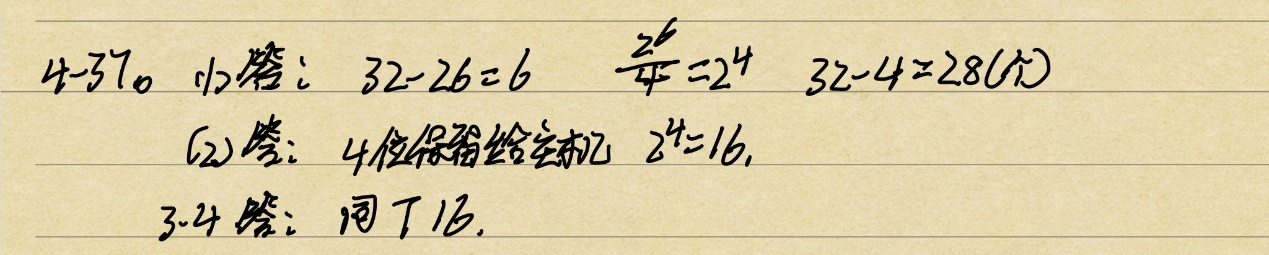 4-37。 (1)答: 32-26=6 2^6/4=2^4 32-4=28(个)
(2)答: 4位保留给主机 2^4=16.
3.4 答: 同下16.